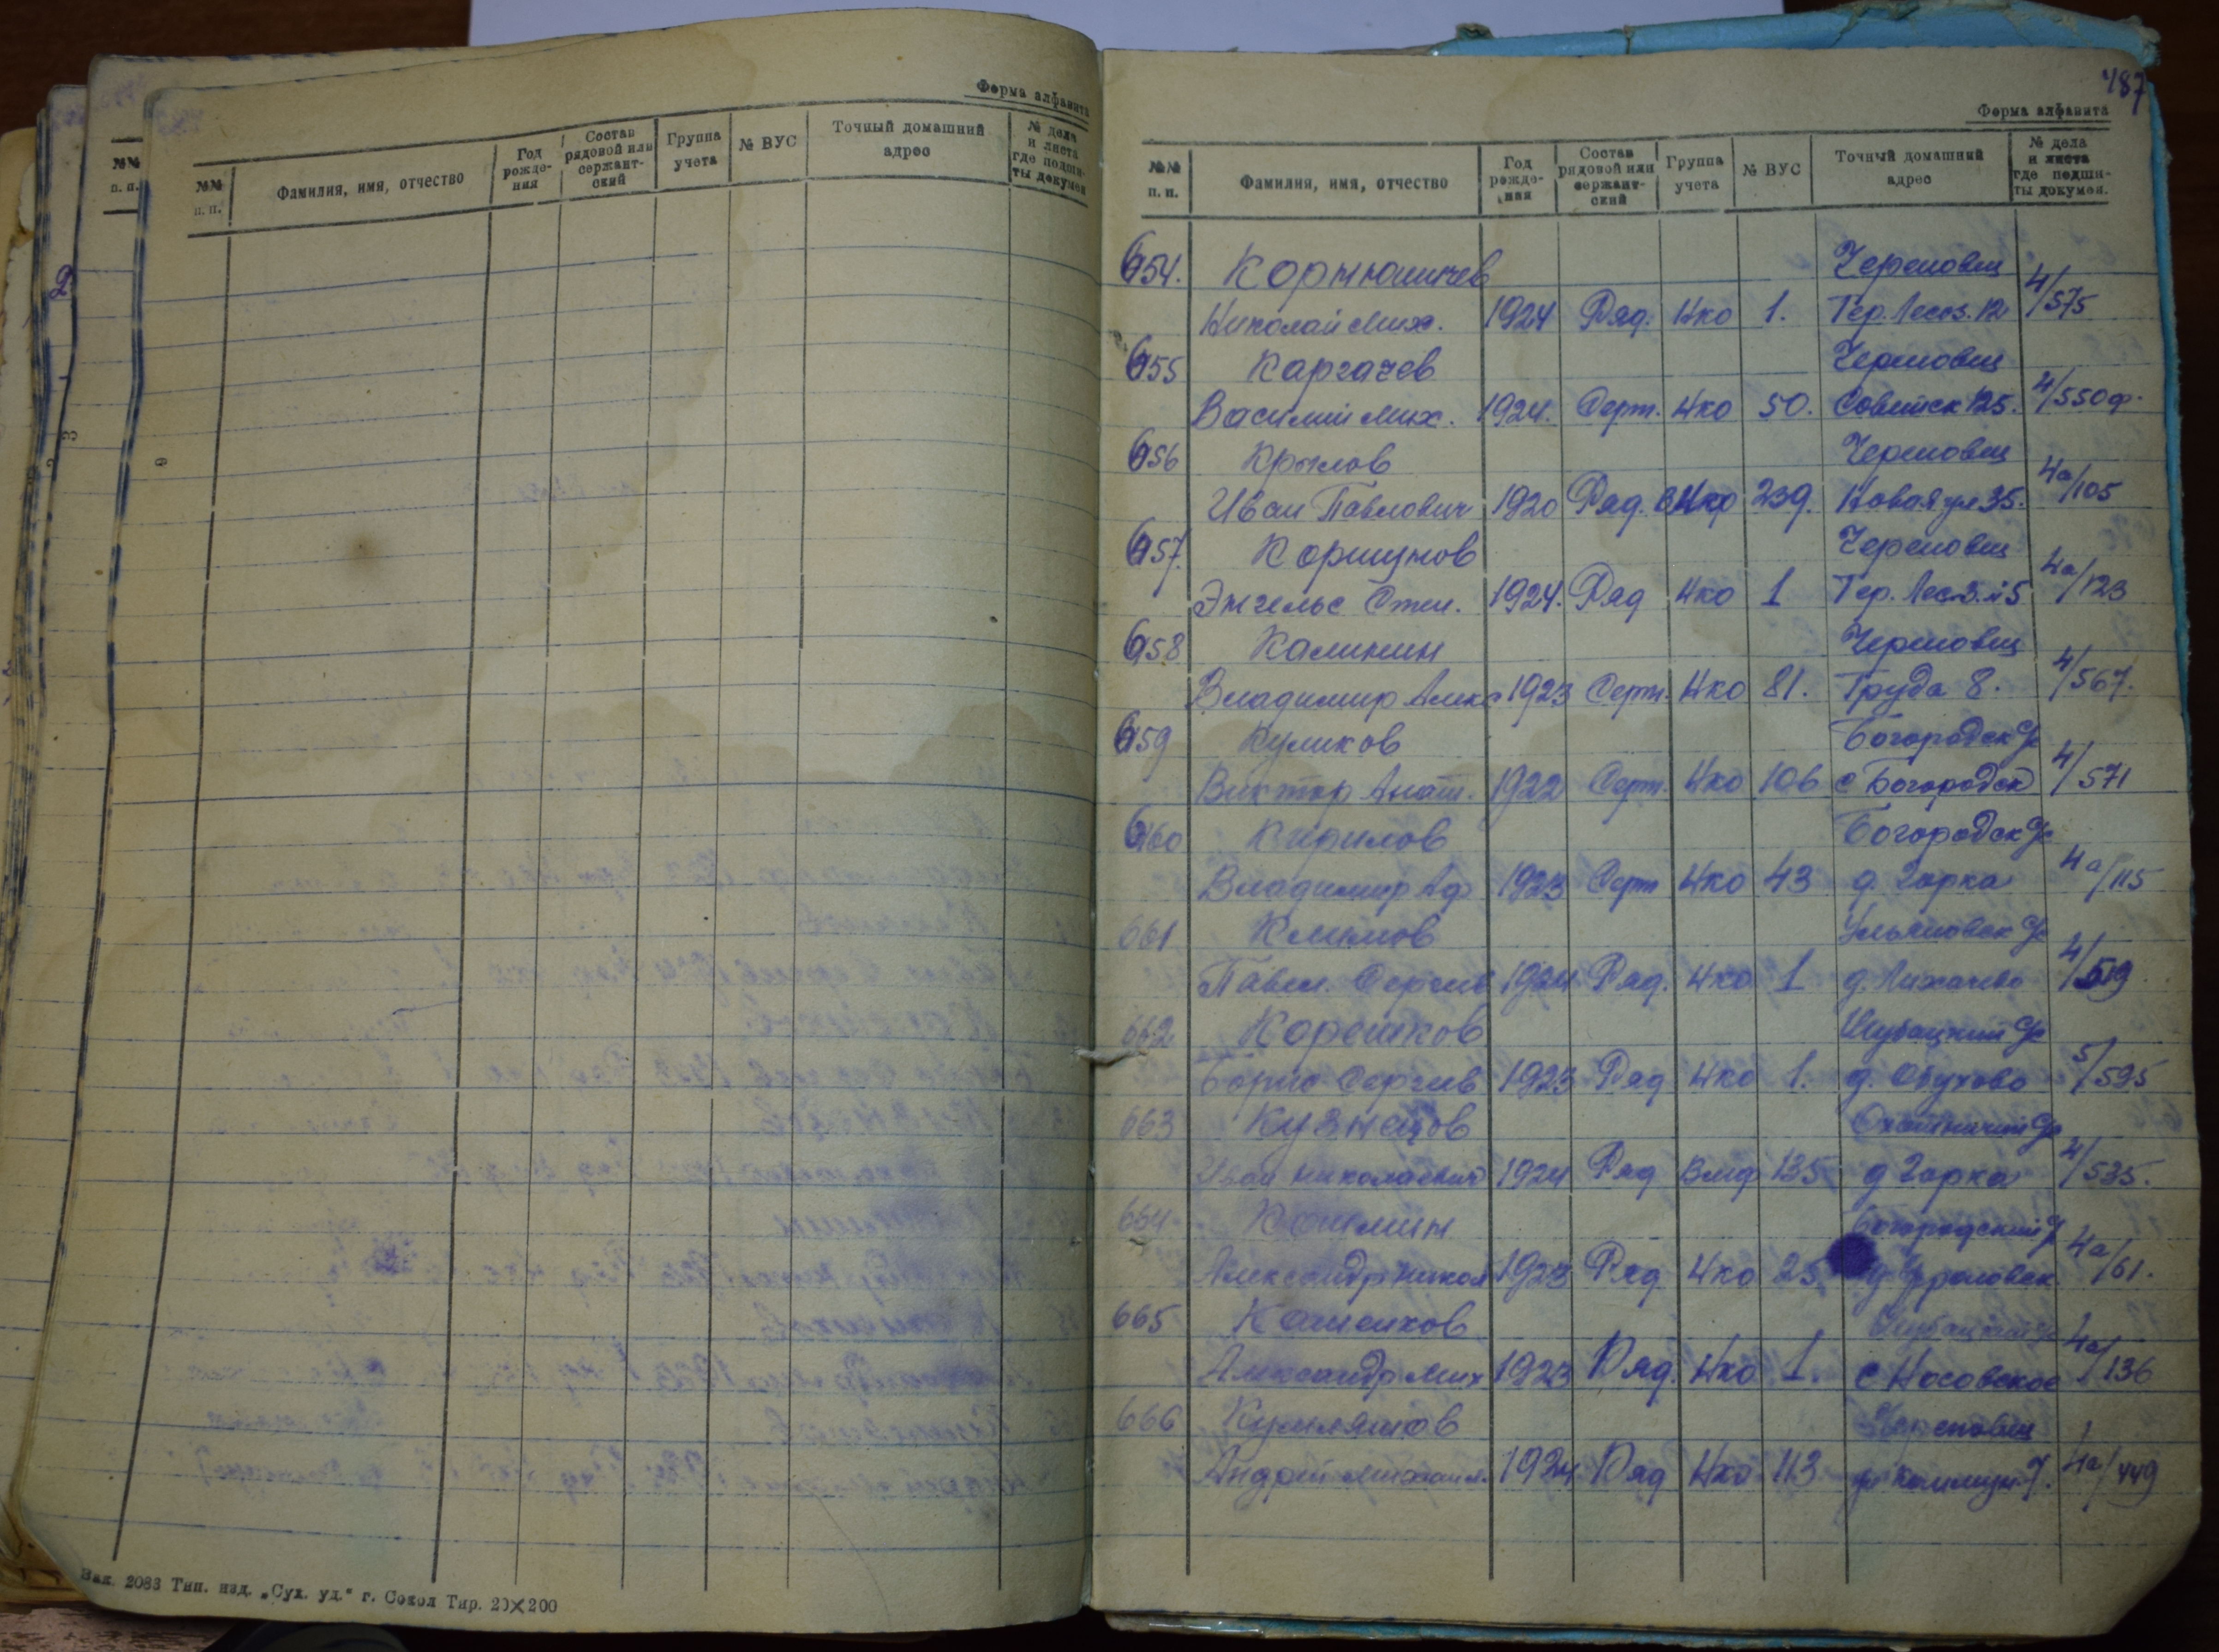 Форма алфавита
№№ п. п. Фамилия, имя, отчество Год рожде- ния Состав рядовой или сержант- ский Группа учета № ВУС Точный домашний адрес № дела и листа где подши- ты докумен
Зак. 2083 Тип. изд. „Сух. уд.“ г. Сокол Тир. 20×200
487
Форма алфавита
№№ п. п. Фамилия, имя, отчество Год рожде- ния Состав рядовой или сержант- ский Группа учета № ВУС Точный домашний адрес № дела и листа где подши- ты докумен.
654. Череповец
Николай Мих. 1924 Ряд. Нко 1. Тер. Лесоз. 12 4/575
655 Каргачев Череповец
Василий Мих. 1924. Серж. Нко 50. Советск 125. 4/550ф.
656 Крылов Череповец
Иван Павлович 1920 Ряд. Нко 239. Новая ул 35. 4а/105
657. Коршунов Череповец
Энгельс Степ. 1924. Ряд Нко 1 Тер. Лес. з. 4а/123
658 Калинин Череповец
Владимир Алекс 1923 Серж. Нко 81. Труда 8. 4/567.
659 Куликов Богородск
Виктор Анат. 1922 Серж. Нко 106 с Богородск 4/571
660 Кирилов Богородск
Владимир Аф 1923 Серж Нко 43 д. Горка 4а/115
661 Климов Ульяновск
Павел Сергеев 1924 Ряд. Нко 1 д. Лихачево 4/519.
662 Корешков Шубацкий
Борис Сергеев 1923 Ряд Нко 1. д. Обухово 5/595
663 Кузнецов
Иван Николаевич 1924 Ряд Вмф 135 д Горка 4/535.
664 Богородский
Александр Никол 1923 Ряд. Нко 25 4а/61.
665
Александр Мих 1923 Ряд. Нко 1. с Носовское 4а/136
666 Череповец
Андрей Михаил. 1924 Ряд Нко 113 4а/449